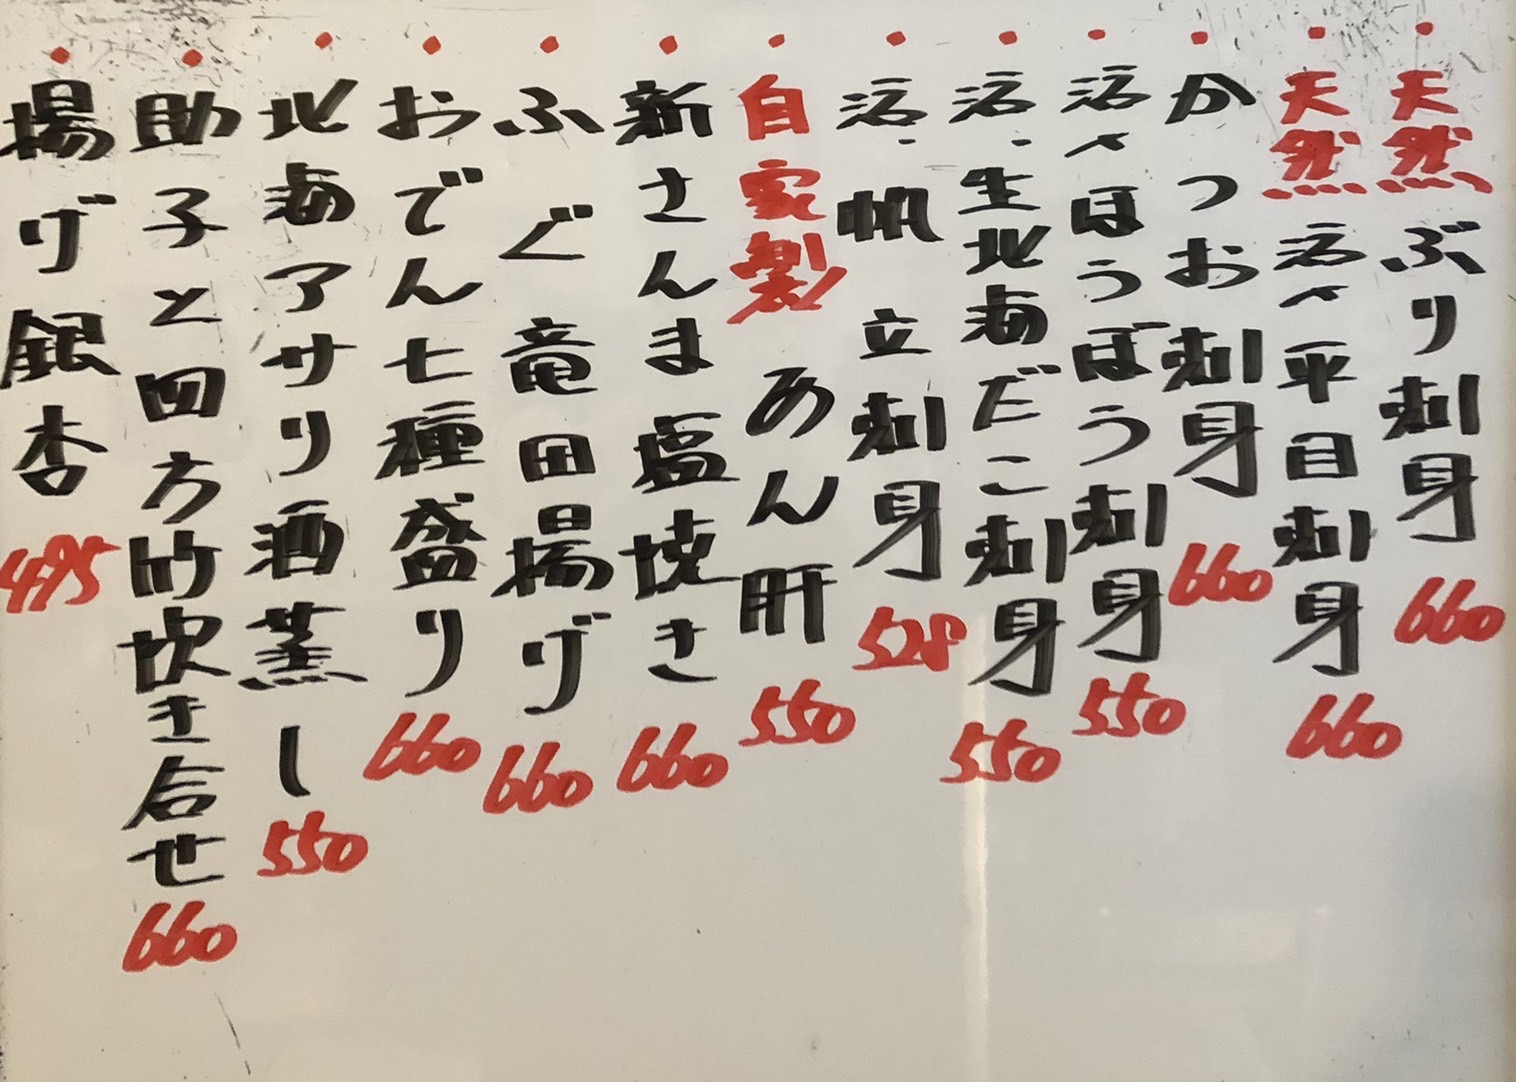 ・天然ぶり刺身 660
・天然活〆平目刺身 660
・かつお刺身 660
・活〆ほうぼう刺身 550
・活、生北海だこ刺身 550
・活、帆立刺身 528
・自家製あん肝 550
・新さんま塩焼き 660
・ふぐ竜田揚げ 660
・おでん七種盛り 660
・北海アサリ酒蒸し 550
・助子と四方竹炊き合せ 660
・揚げ銀杏 495